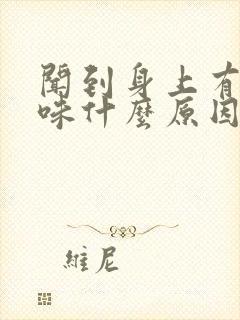 聞到身上有
味什麼原因
維尼